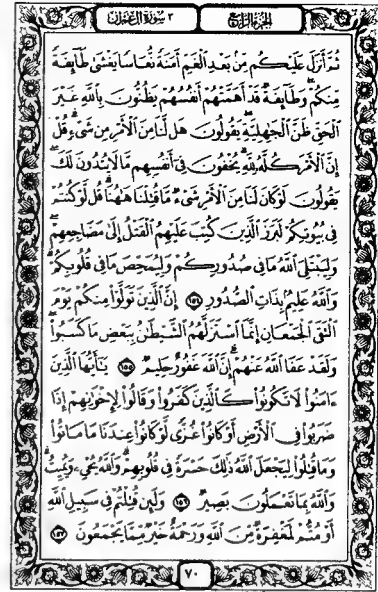 الجزء الرابع
٣ سورة آل عمران
ثُمَّ أَنزَلَ عَلَيْكُم مِّنۢ بَعْدِ ٱلْغَمِّ أَمَنَةً نُّعَاسًا يَغْشَىٰ طَآئِفَةً
مِّنكُمْ وَطَآئِفَةٌ قَدْ أَهَمَّتْهُمْ أَنفُسُهُمْ يَظُنُّونَ بِٱللَّهِ غَيْرَ
ٱلْحَقِّ ظَنَّ ٱلْجَٰهِلِيَّةِ يَقُولُونَ هَل لَّنَا مِنَ ٱلْأَمْرِ مِن شَىْءٍ قُلْ
إِنَّ ٱلْأَمْرَ كُلَّهُۥ لِلَّهِ يُخْفُونَ فِىٓ أَنفُسِهِم مَّا لَا يُبْدُونَ لَكَ
يَقُولُونَ لَوْ كَانَ لَنَا مِنَ ٱلْأَمْرِ شَىْءٌ مَّا قُتِلْنَا هَٰهُنَا قُل لَّوْ كُنتُمْ
فِى بُيُوتِكُمْ لَبَرَزَ ٱلَّذِينَ كُتِبَ عَلَيْهِمُ ٱلْقَتْلُ إِلَىٰ مَضَاجِعِهِمْ
وَلِيَبْتَلِىَ ٱللَّهُ مَا فِى صُدُورِكُمْ وَلِيُمَحِّصَ مَا فِى قُلُوبِكُمْ
وَٱللَّهُ عَلِيمٌۢ بِذَاتِ ٱلصُّدُورِ ١٥٤ إِنَّ ٱلَّذِينَ تَوَلَّوْا۟ مِنكُمْ يَوْمَ
ٱلْتَقَى ٱلْجَمْعَانِ إِنَّمَا ٱسْتَزَلَّهُمُ ٱلشَّيْطَٰنُ بِبَعْضِ مَا كَسَبُوا۟
وَلَقَدْ عَفَا ٱللَّهُ عَنْهُمْ إِنَّ ٱللَّهَ غَفُورٌ حَلِيمٌ ١٥٥ يَٰٓأَيُّهَا ٱلَّذِينَ
ءَامَنُوا۟ لَا تَكُونُوا۟ كَٱلَّذِينَ كَفَرُوا۟ وَقَالُوا۟ لِإِخْوَٰنِهِمْ إِذَا
ضَرَبُوا۟ فِى ٱلْأَرْضِ أَوْ كَانُوا۟ غُزًّى لَّوْ كَانُوا۟ عِندَنَا مَا مَاتُوا۟
وَمَا قُتِلُوا۟ لِيَجْعَلَ ٱللَّهُ ذَٰلِكَ حَسْرَةً فِى قُلُوبِهِمْ وَٱللَّهُ يُحْىِۦ وَيُمِيتُ
وَٱللَّهُ بِمَا تَعْمَلُونَ بَصِيرٌ ١٥٦ وَلَئِن قُتِلْتُمْ فِى سَبِيلِ ٱللَّهِ
أَوْ مُتُّمْ لَمَغْفِرَةٌ مِّنَ ٱللَّهِ وَرَحْمَةٌ خَيْرٌ مِّمَّا يَجْمَعُونَ ١٥٧
٧٠